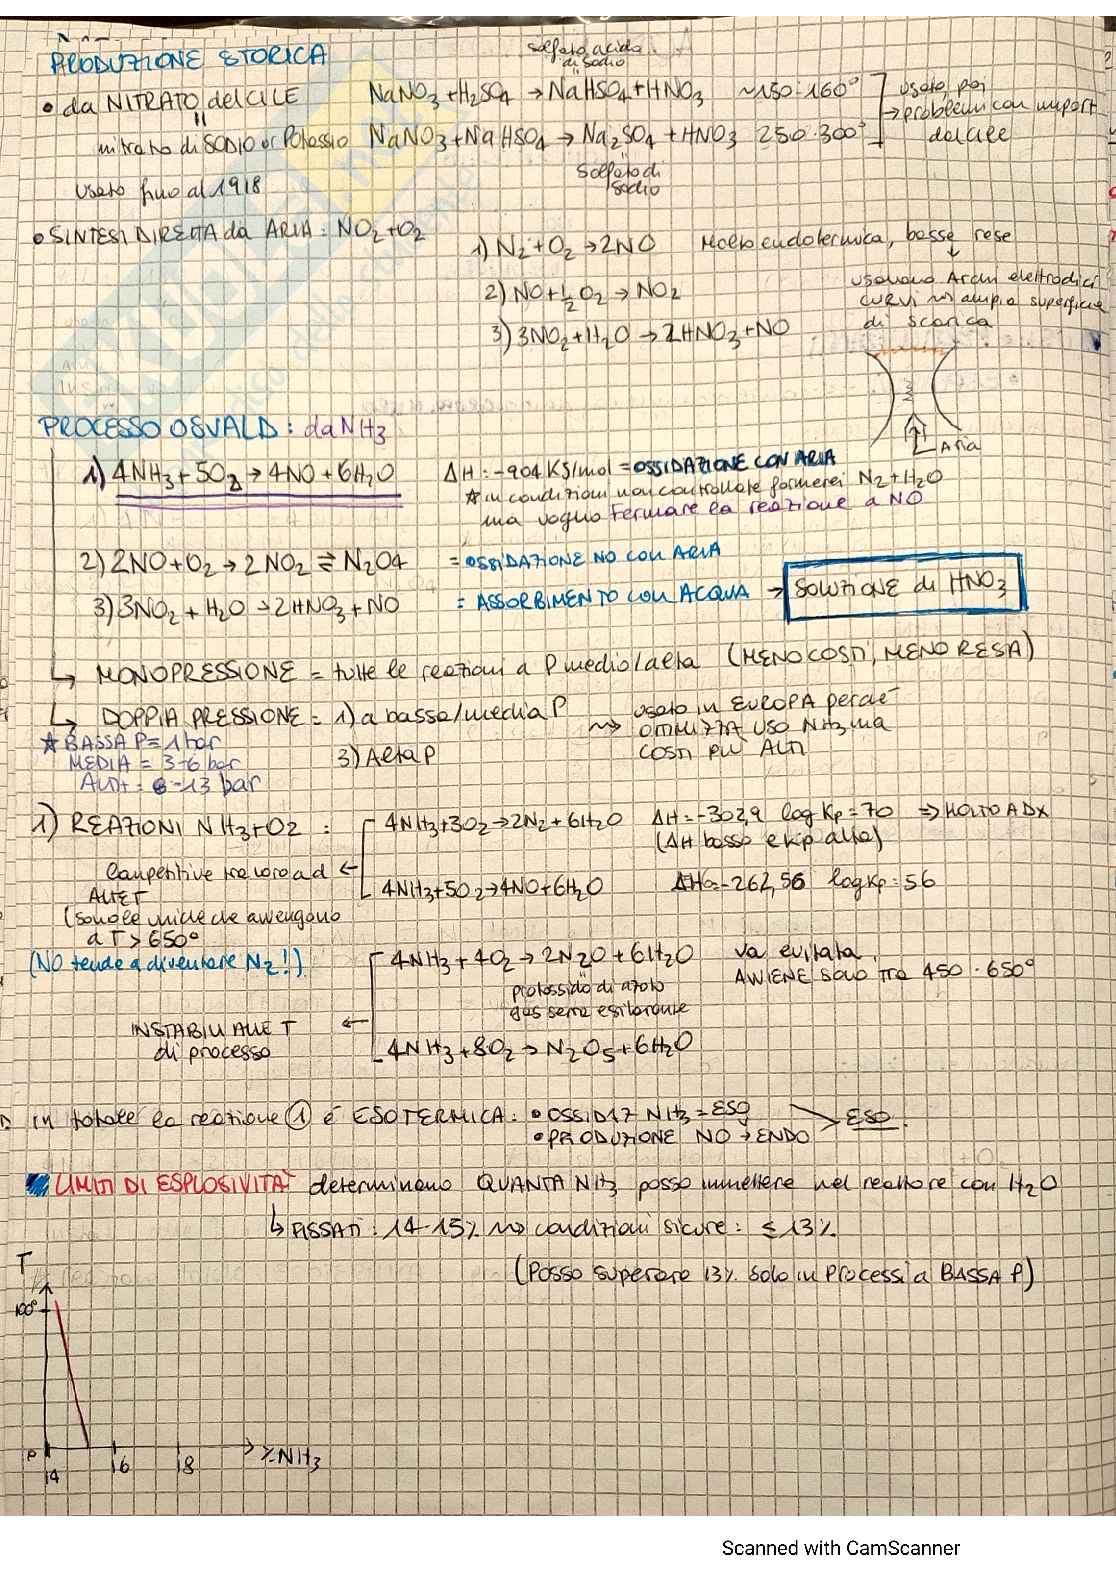 PRODUZIONE STORICA
solfato acido
di sodio
• da NITRATO del CILE NaNO3+H2SO4 → NaHSO4+HNO3 ~150÷160° usato poi
→ problemi con import
nitrato di SODIO o Potassio NaNO3+NaHSO4 → Na2SO4 + HNO3 250-300° del cile
solfato di
sodio
usato fino al 1918
• SINTESI DIRETTA da ARIA: NO2+O2
1) N2+O2 → 2NO Molto endotermica, basse rese
2) NO+½O2 → NO2
usavano Archi elettrodici
CURVI in ampia superficie
di scarica
3) 3NO2+H2O → 2HNO3+NO
Aria
PROCESSO OSVALD: da NH3
1) 4NH3+5O2 → 4NO+6H2O ΔH:-904 KJ/mol = OSSIDAZIONE CON ARIA
* in condizioni non controllate formerei N2+H2O
ma voglio Fermare la reazione a NO
2) 2NO+O2 → 2NO2 ⇌ N2O4 = OSSIDAZIONE NO con ARIA
3) 3NO2 + H2O → 2HNO3+NO = ASSORBIMENTO con ACQUA → SOLUZIONE di HNO3
↳ MONOPRESSIONE = tutte le reazioni a P media/alta (MENO COSTI, MENO RESA)
↳ DOPPIA PRESSIONE = 1) a bassa/media P
3) Alta P
usato in EUROPA perché
OTTIMIZZA USO NH3 ma
COSTI PIÙ ALTI
* BASSA P= 1 bar
MEDIA = 3-6 bar
ALTA = 6-13 bar
1) REAZIONI NH3+O2 : 4NH3+3O2 → 2N2+6H2O ΔH=-302,9 log Kp=70 ⇒ MOLTO A DX
(ΔH basso e kp alta)
Competitive tra loro ad ←
ALTE T
4NH3+5O2→4NO+6H2O ΔH=-262,56 logKp=56
(sono le uniche che avvengono
a T > 650°
(NO tende a diventare N2!)
4NH3+4O2 → 2N2O+6H2O va evitata.
AVVIENE solo tra 450-650°
protossido di azoto
gas serra esilarante
INSTABILI ALLE T ←
di processo
4NH3+8O2 → N2O5+6H2O
in totale la reazione 1 è ESOTERMICA: • OSSIDAZ NH3 = ESO
• PRODUZIONE NO → ENDO
ESO.
LIMITI DI ESPLOSIVITÀ determinano QUANTA NH3 posso immettere nel reattore con H2O
↳ FISSATI: 14-15% condizioni sicure: ≤ 13%
(Posso superare 13% solo in Processi a BASSA P)
T
100°
P
14
16
18
% NH3
Scanned with CamScanner